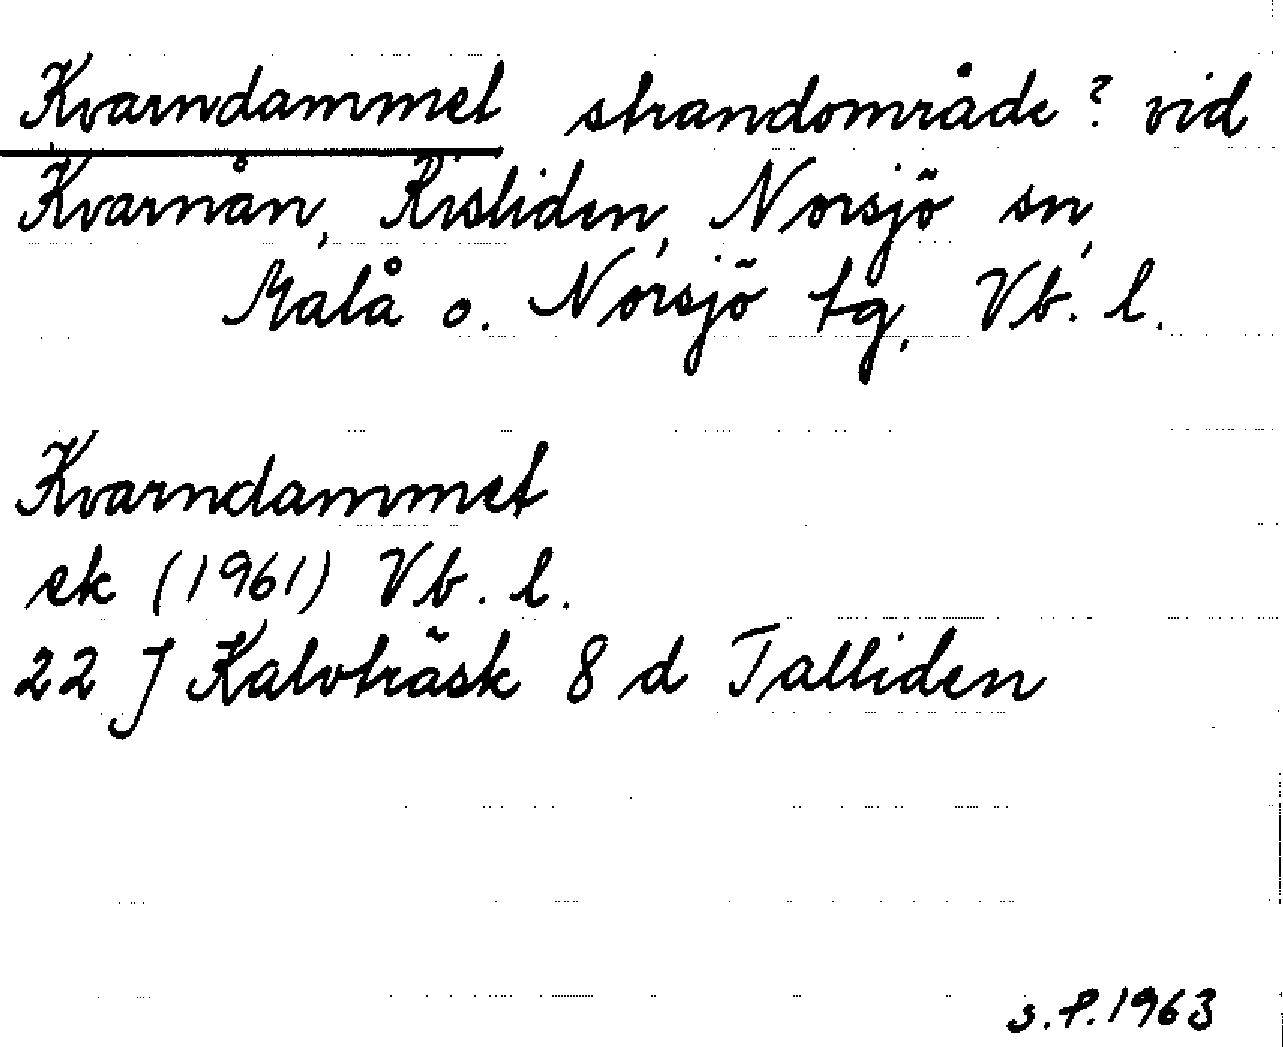 Kvarndammet strandområde? vid
Kvarnån, Risliden, Norsjö sn,
Malå o. Norsjö tg, Vb. l.
Kvarndammet
ek (1961) Vb. l.
22 J Kalvträsk 8 d Talliden
s.f. 1963